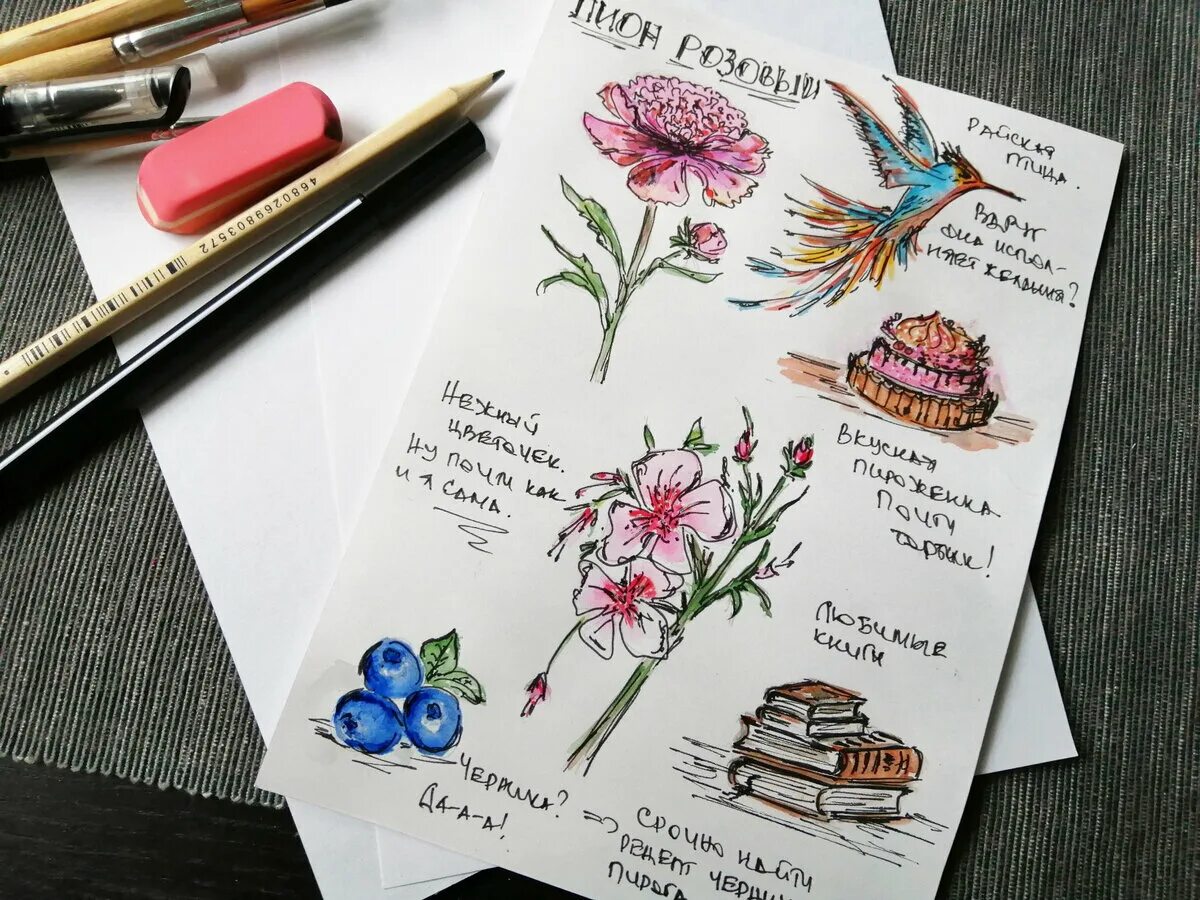 ПИОН РОЗОВЫЙ
РАЙСКАЯ
ПТИЦА.
ВДРУГ
ОНА ИСПОЛ-
НЯЕТ ЖЕЛАНИЯ?
ВКУСНАЯ
ПИРОЖЕНКА
ПОЧТИ
НЕЖНЫЙ
ЦВЕТОЧЕК.
НУ ПОЧТИ КАК
И Я САМА.
ЛЮБИМЫЕ
КНИГИ
ЧЕРНИКА?
ДА-А-А!
=> СРОЧНО НАЙТИ
РЕЦЕПТ
ПИРОГА
4680269803572